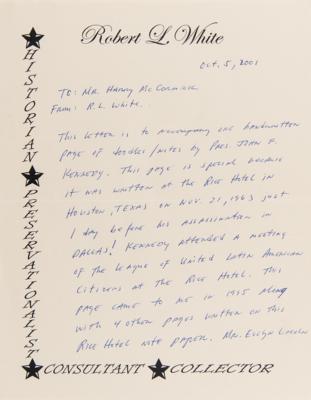 Robert L. White
Oct. 5, 2001
To: Mr. Harry McCormick
From: R.L. White
This letter is to accompany one handwritten
page of doodles/notes by Pres. John F.
Kennedy. This page is special because
it was written at the Rice Hotel in
Houston, Texas on Nov. 21, 1963 just
1 day before his assassination in
Dallas! Kennedy attended a meeting
of the League of United Latin American
Citizens at the Rice Hotel. This
page came to me in 1995 along
with 4 other pages written on this
Rice Hotel note paper. Mrs. Evelyn Lincoln
HISTORIAN
PRESERVATIONALIST
CONSULTANT COLLECTOR